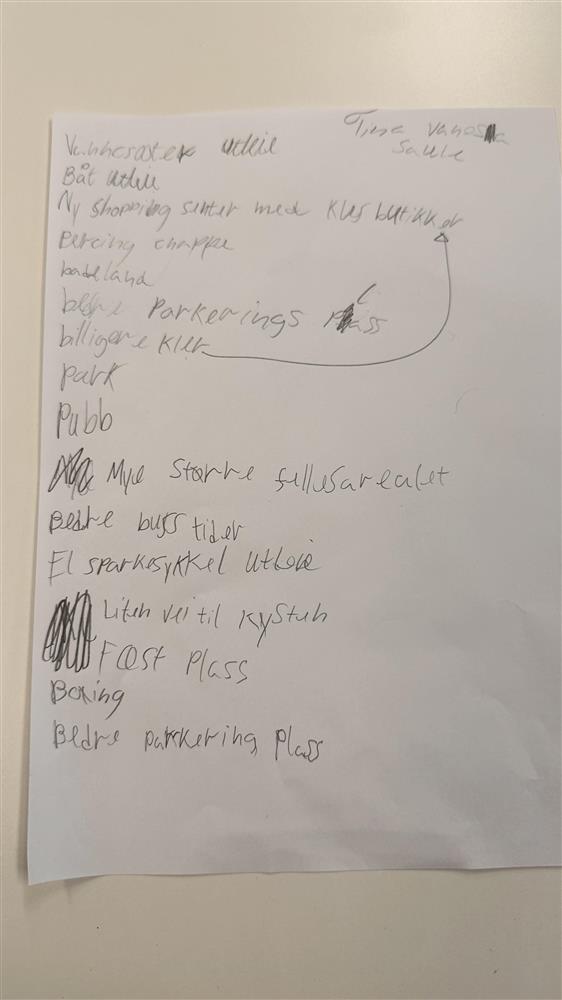 Tina Vanessa
Saule
Vannscooter utleie
Båt utleie
Ny shopping senter med Kles butikker
Percing chappe
badeland
bedre Parkerings Plass
billigere Kler
park
Pubb
Mye Større fellesarealet
Bedre buss tider
El sparkesykkel Utleie
Liten vei til Kysten
Fæst Plass
Boxing
Bedre parkering Plass